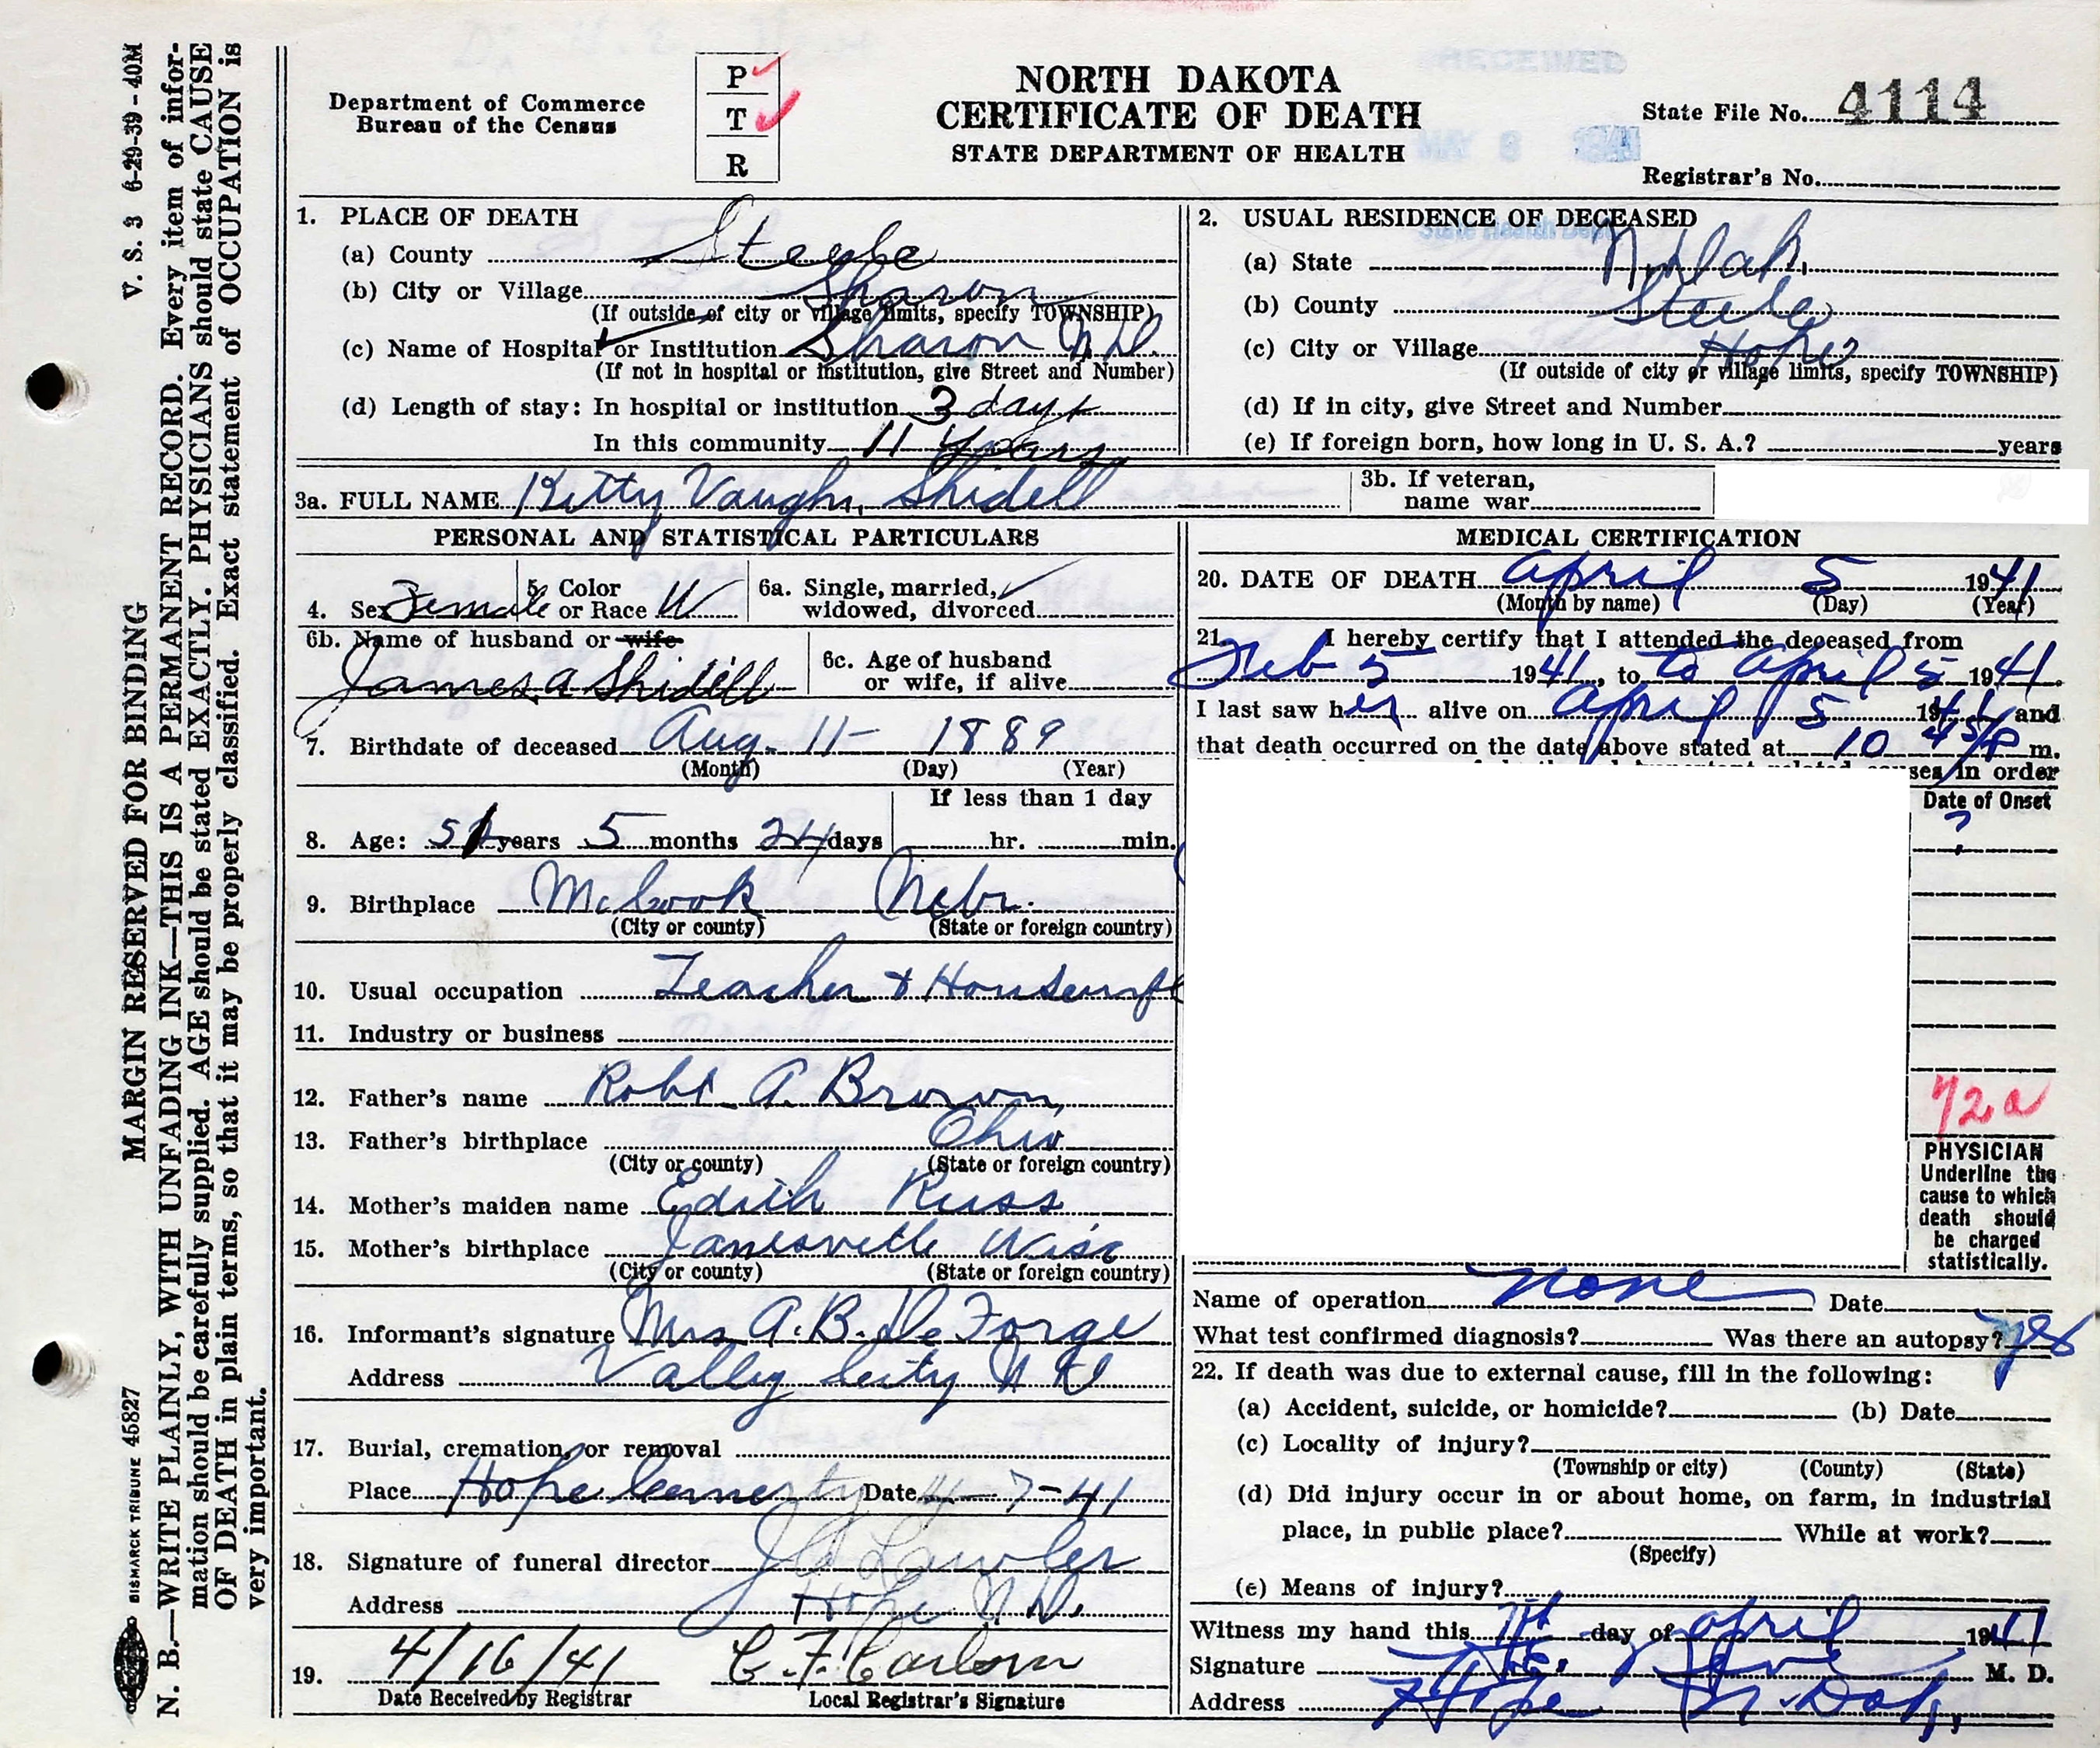 V. S. 3 6-29-39-40M
MARGIN RESERVED FOR BINDING
BISMARCK TRIBUNE 45827
N. B.—WRITE PLAINLY, WITH UNFADING INK—THIS IS A PERMANENT RECORD. Every item of infor-
mation should be carefully supplied. AGE should be stated EXACTLY. PHYSICIANS should state CAUSE
OF DEATH in plain terms, so that it may be properly classified. Exact statement of OCCUPATION is
very important.
Department of Commerce
Bureau of the Census
P
T
R
NORTH DAKOTA
CERTIFICATE OF DEATH
STATE DEPARTMENT OF HEALTH
RECEIVED
MAY 8 1941
State Health Dept.
State File No. 4114
Registrar's No.
1. PLACE OF DEATH
(a) County Steele
(b) City or Village Sharon
(If outside of city or village limits, specify TOWNSHIP)
(c) Name of Hospital or Institution Sharon N.D.
(If not in hospital or institution, give Street and Number)
(d) Length of stay: In hospital or institution 3 days
In this community 11 years
2. USUAL RESIDENCE OF DECEASED
(a) State N. Dak.
(b) County Steele
(c) City or Village Hope
(If outside of city or village limits, specify TOWNSHIP)
(d) If in city, give Street and Number
(e) If foreign born, how long in U. S. A.? years
3a. FULL NAME Kitty Vaughn Shidell
3b. If veteran,
name war
PERSONAL AND STATISTICAL PARTICULARS
4. Sex Female 5. Color or Race W
6a. Single, married,
widowed, divorced
6b. Name of husband or wife
James A Shidell
6c. Age of husband
or wife, if alive
7. Birthdate of deceased Aug. 11- 1889
(Month) (Day) (Year)
If less than 1 day
8. Age: 51 years 5 months 24 days hr. min.
9. Birthplace McCook Nebr.
(City or county) (State or foreign country)
10. Usual occupation Teacher & Housewife
11. Industry or business
12. Father's name Robt A. Brown
13. Father's birthplace Ohio
(City or county) (State or foreign country)
14. Mother's maiden name Edith Russ
15. Mother's birthplace Janesville Wisc
(City or county) (State or foreign country)
16. Informant's signature Mrs A. B. De Forge
Address Valley City N D
17. Burial, cremation, or removal
Place Hope Cemerty Date 4-7-41
18. Signature of funeral director J A Lawler
Address Hope N D.
19. 4/16/41 C. F. Carlson
Date Received by Registrar Local Registrar's Signature
MEDICAL CERTIFICATION
20. DATE OF DEATH April 5 1941
(Month by name) (Day) (Year)
21. I hereby certify that I attended the deceased from
Feb 5 1941, to to April 5 1941.
I last saw her alive on April 5 1941 and
that death occurred on the date above stated at 10 45 P m.
ses in order
Date of Onset
?
72a
PHYSICIAN
Underline the
cause to which
death should
be charged
statistically.
Name of operation none Date
What test confirmed diagnosis? Was there an autopsy? yes
22. If death was due to external cause, fill in the following:
(a) Accident, suicide, or homicide? (b) Date
(c) Locality of injury?
(Township or city) (County) (State)
(d) Did injury occur in or about home, on farm, in industrial
place, in public place? While at work?
(Specify)
(e) Means of injury?
Witness my hand this 7th day of April 1941
Signature M. D.
Address Hope N. Dak,